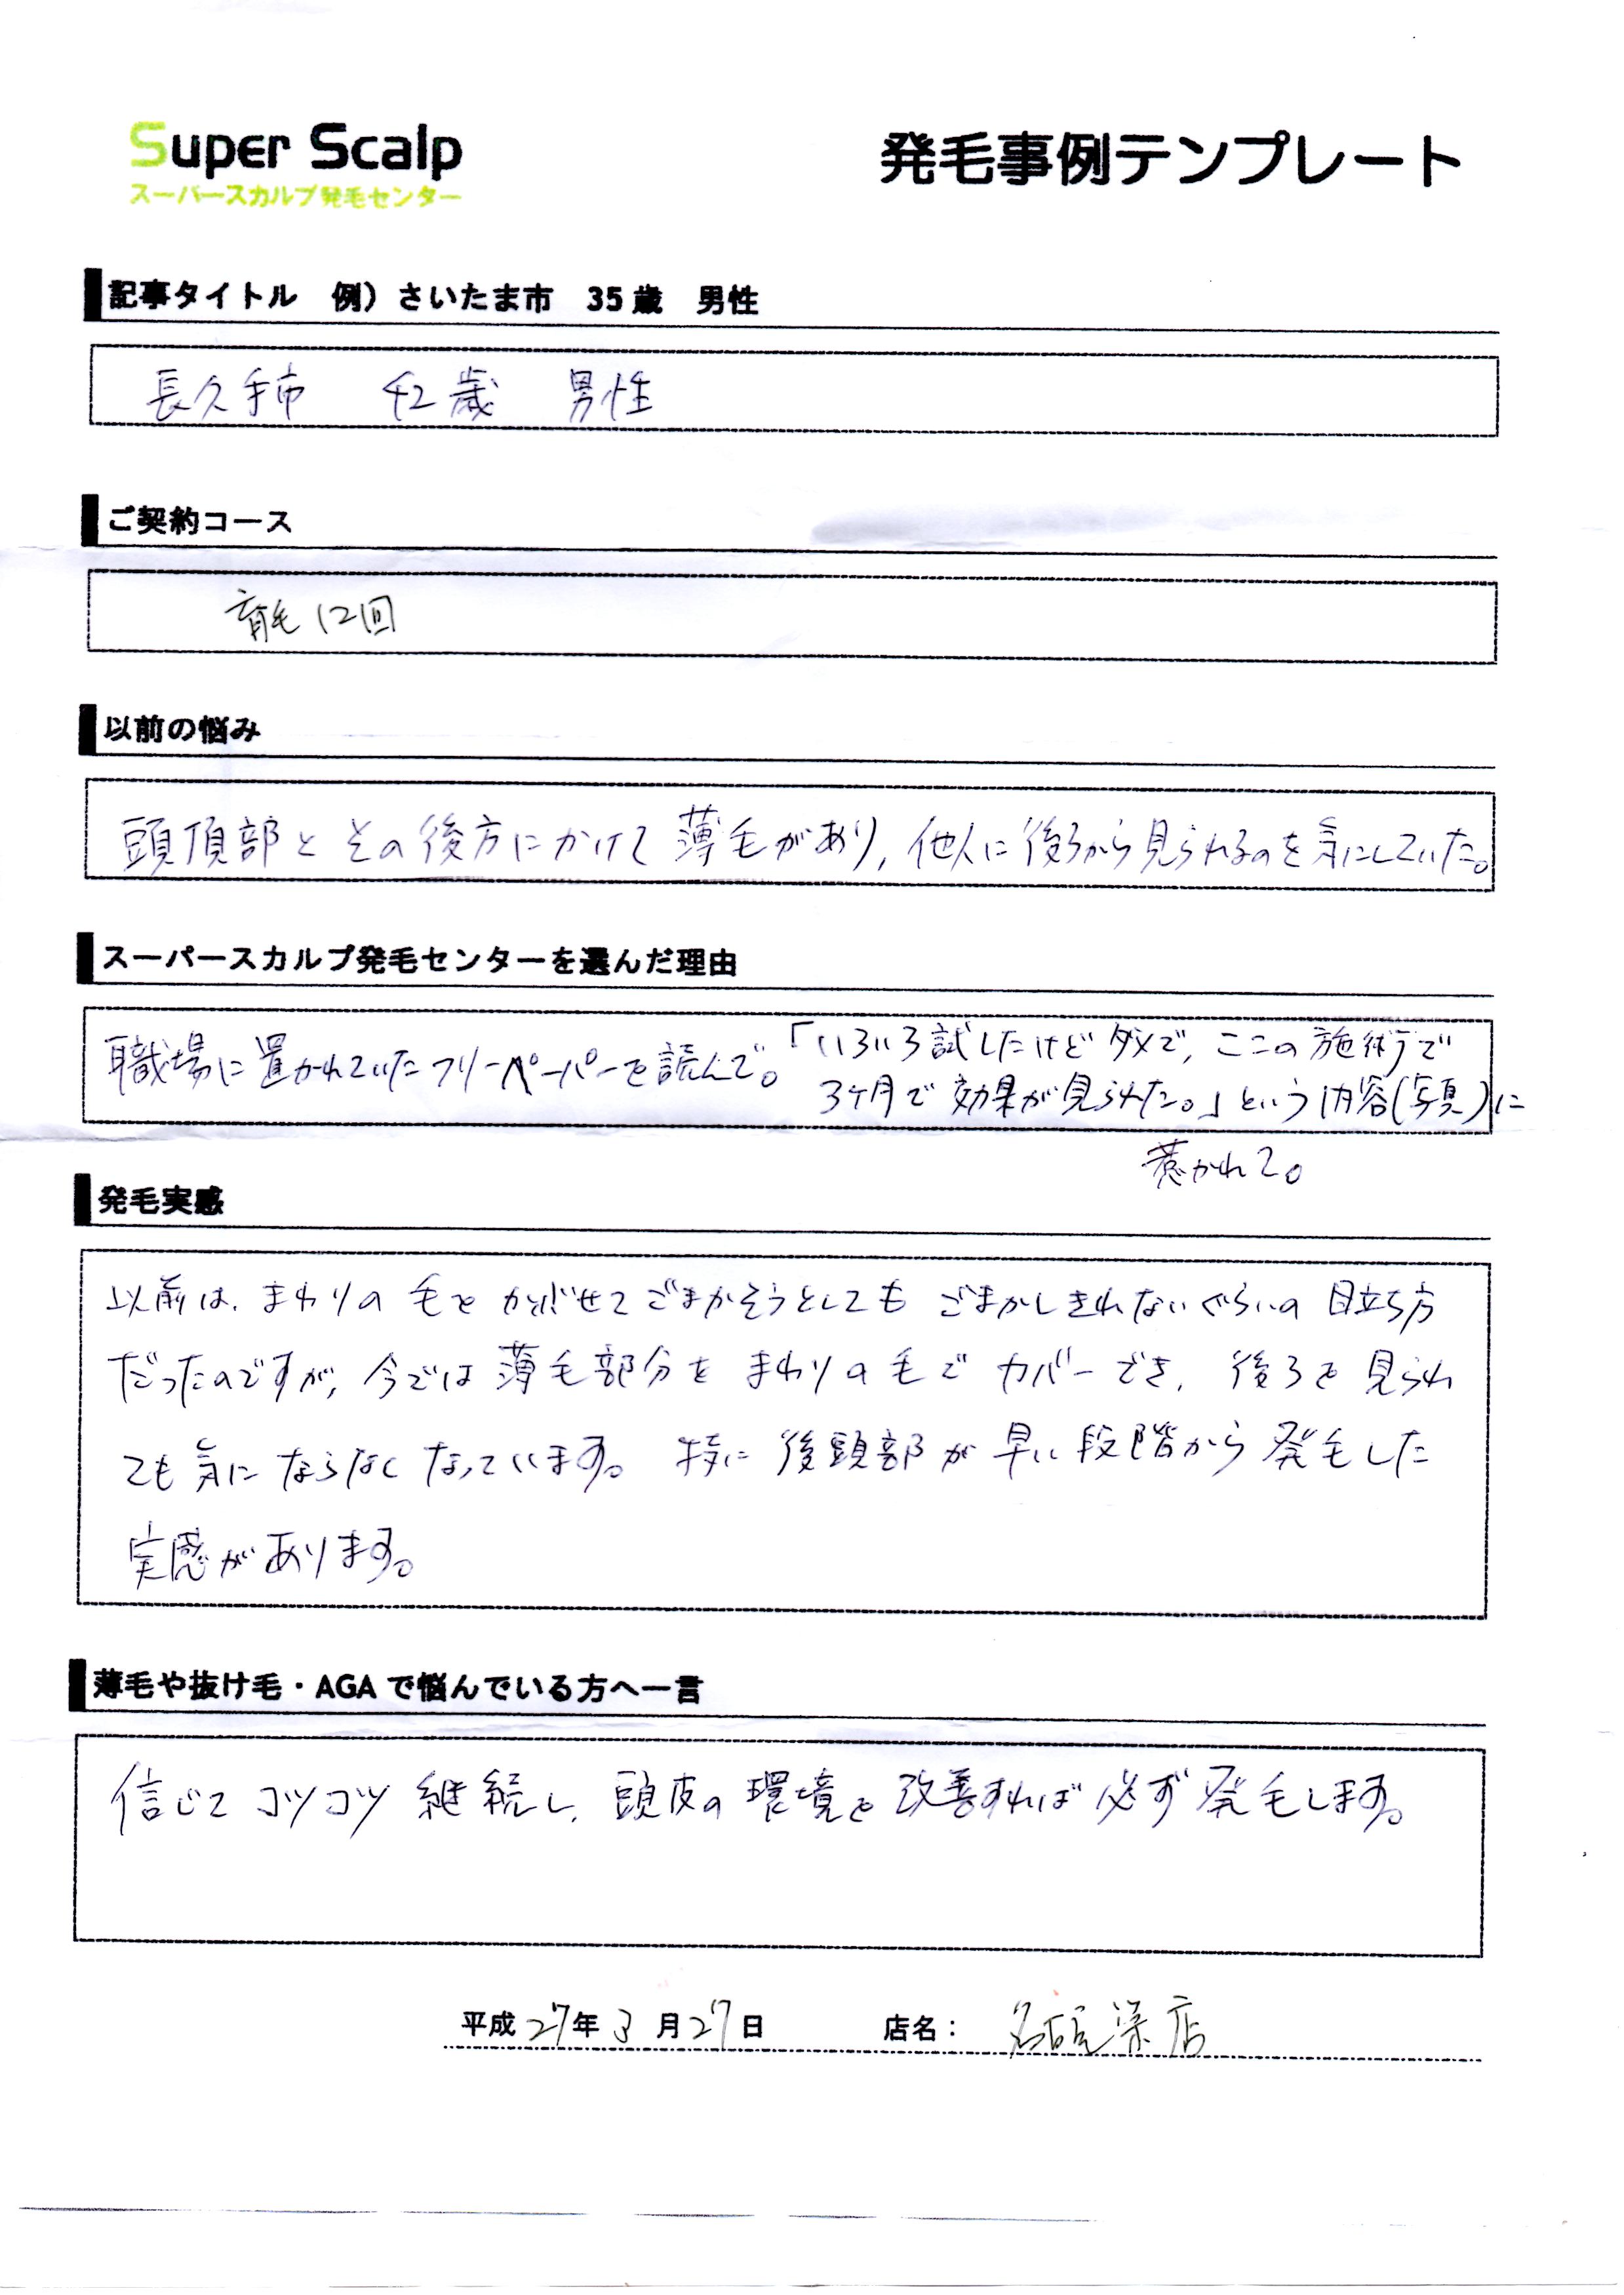 Super Scalp
スーパースカルプ発毛センター
発毛事例テンプレート
記事タイトル 例）さいたま市 35歳 男性
長久手市 42歳 男性
ご契約コース
育毛12回
以前の悩み
頭頂部とその後方にかけて薄毛があり、他人に後ろから見られるのを気にしていた。
スーパースカルプ発毛センターを選んだ理由
職場に置かれていたフリーペーパーを読んで。「いろいろ試したけどダメで、ここの施術で
3ヶ月で効果が見られた。」という内容(写真)に
惹かれて。
発毛実感
以前は、まわりの毛をかぶせてごまかそうとしてもごまかしきれないぐらいの目立ち方
だったのですが、今では薄毛部分をまわりの毛でカバーでき、後ろを見られ
ても気にならなくなっています。特に後頭部が早い段階から発毛した
実感があります。
薄毛や抜け毛・AGAで悩んでいる方へ一言
信じてコツコツ継続し、頭皮の環境を改善すれば必ず発毛します。
平成27年3月27日 店名： 名古屋栄店